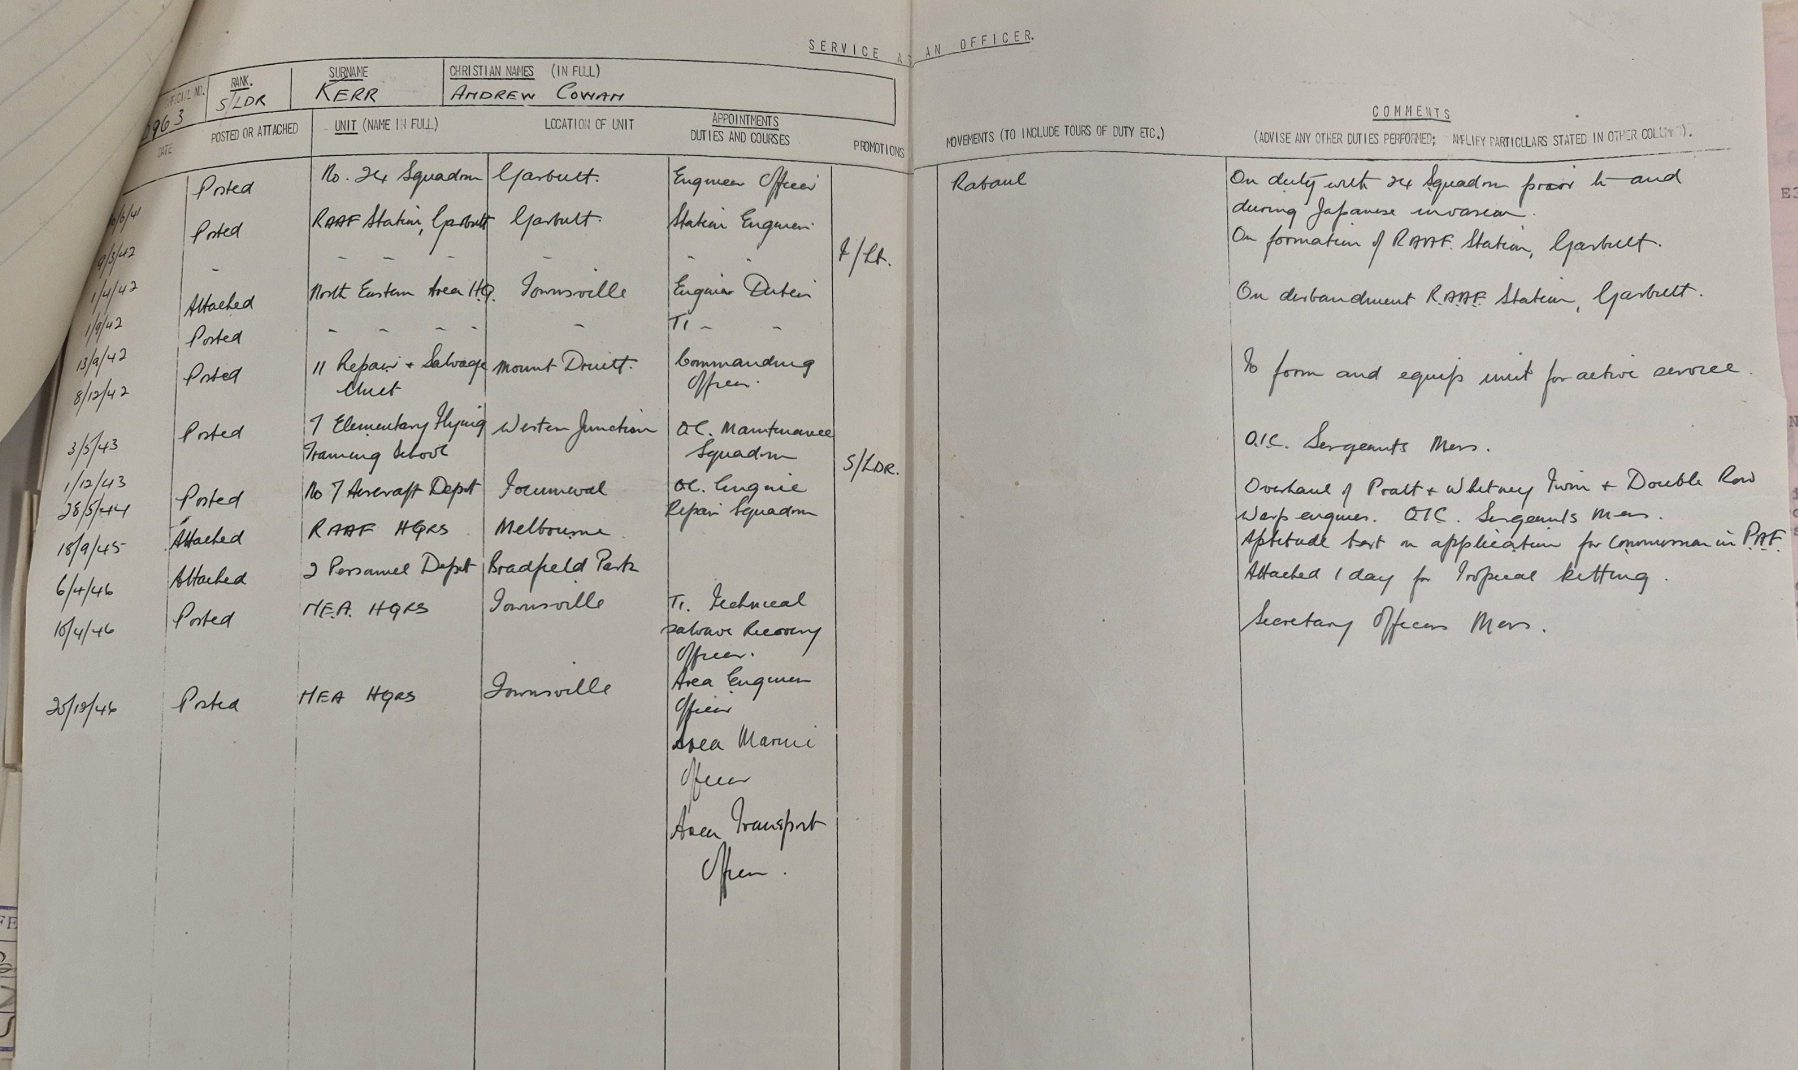 SERVICE AS AN OFFICER.
RANK. SURNAME CHRISTIAN NAMES (IN FULL)
2963 S/LDR KERR ANDREW COWAN
COMMENTS
DATE POSTED OR ATTACHED UNIT (NAME IN FULL) LOCATION OF UNIT APPOINTMENTS DUTIES AND COURSES PROMOTIONS MOVEMENTS (TO INCLUDE TOURS OF DUTY ETC.) (ADVISE ANY OTHER DUTIES PERFORMED; AMPLIFY PARTICULARS STATED IN OTHER COLUMNS).
/6/41 Posted No. 24 Squadron Garbutt. Engineer Officer Rabaul On duty with 24 Squadron prior to and
during Japanese invasion.
9/3/42 Posted RAAF Station, Garbutt Garbutt. Station Engineer On formation of RAAF. Station, Garbutt.
1/4/42 - - - - - - - - F/Lt.
1/9/42 Attached North Eastern Area HQ. Townsville Engineer Duties On disbandment RAAF Station, Garbutt.
13/9/42 Posted - - - - - T1 - -
8/12/42 Posted 11 Repair + Salvage Mount Druitt. Commanding To form and equip unit for active service.
Unit Officer.
3/5/43 Posted 7 Elementary Flying Western Junction O.C. Maintenance O.I.C. Sergeants Mess.
Training School Squadron
1/12/43 S/LDR.
28/5/44 Posted No 7 Aircraft Depot Tocumwal OC. Engine Overhaul of Pratt + Whitney Twin + Double Row
Repair Squadron Wasp engines. OIC. Sergeants Mess.
18/9/45 Attached RAAF HQRS Melbourne. Aptitude test on application for commission in P.A.F.
6/4/46 Attached 2 Personnel Depot Bradfield Park Attached 1 day for Tropical kitting.
10/4/46 Posted N.E.A. HQRS Townsville T1. Technical Secretary Officers Mess.
Salvage Recovery
Officer.
Posted NEA HQRS Townsville Area Engineer
Officer
Area Marine
Officer
Area Transport
Officer.